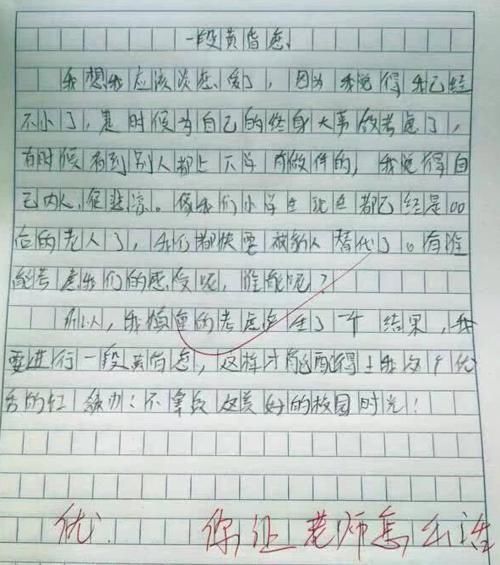 一段黄昏恋
我想我应该谈恋爱了，因为我觉得我已经
不小了，是时候为自己的终身大事做考虑了，
有时候看到别人都上下学有做伴的，我觉得自
己内人，很悲凉。像我们小学生现在都已经是00
后的老人了，我们都快要被新人替代了。有谁
能考虑我们的感受呢，谁能呢？
所以，我慎重的考虑产生了一个结果，我
要进行一段黄昏恋，这样才能配得上我这个优
秀的红领巾！不辜负这美好的校园时光！
优
你让老师怎么活